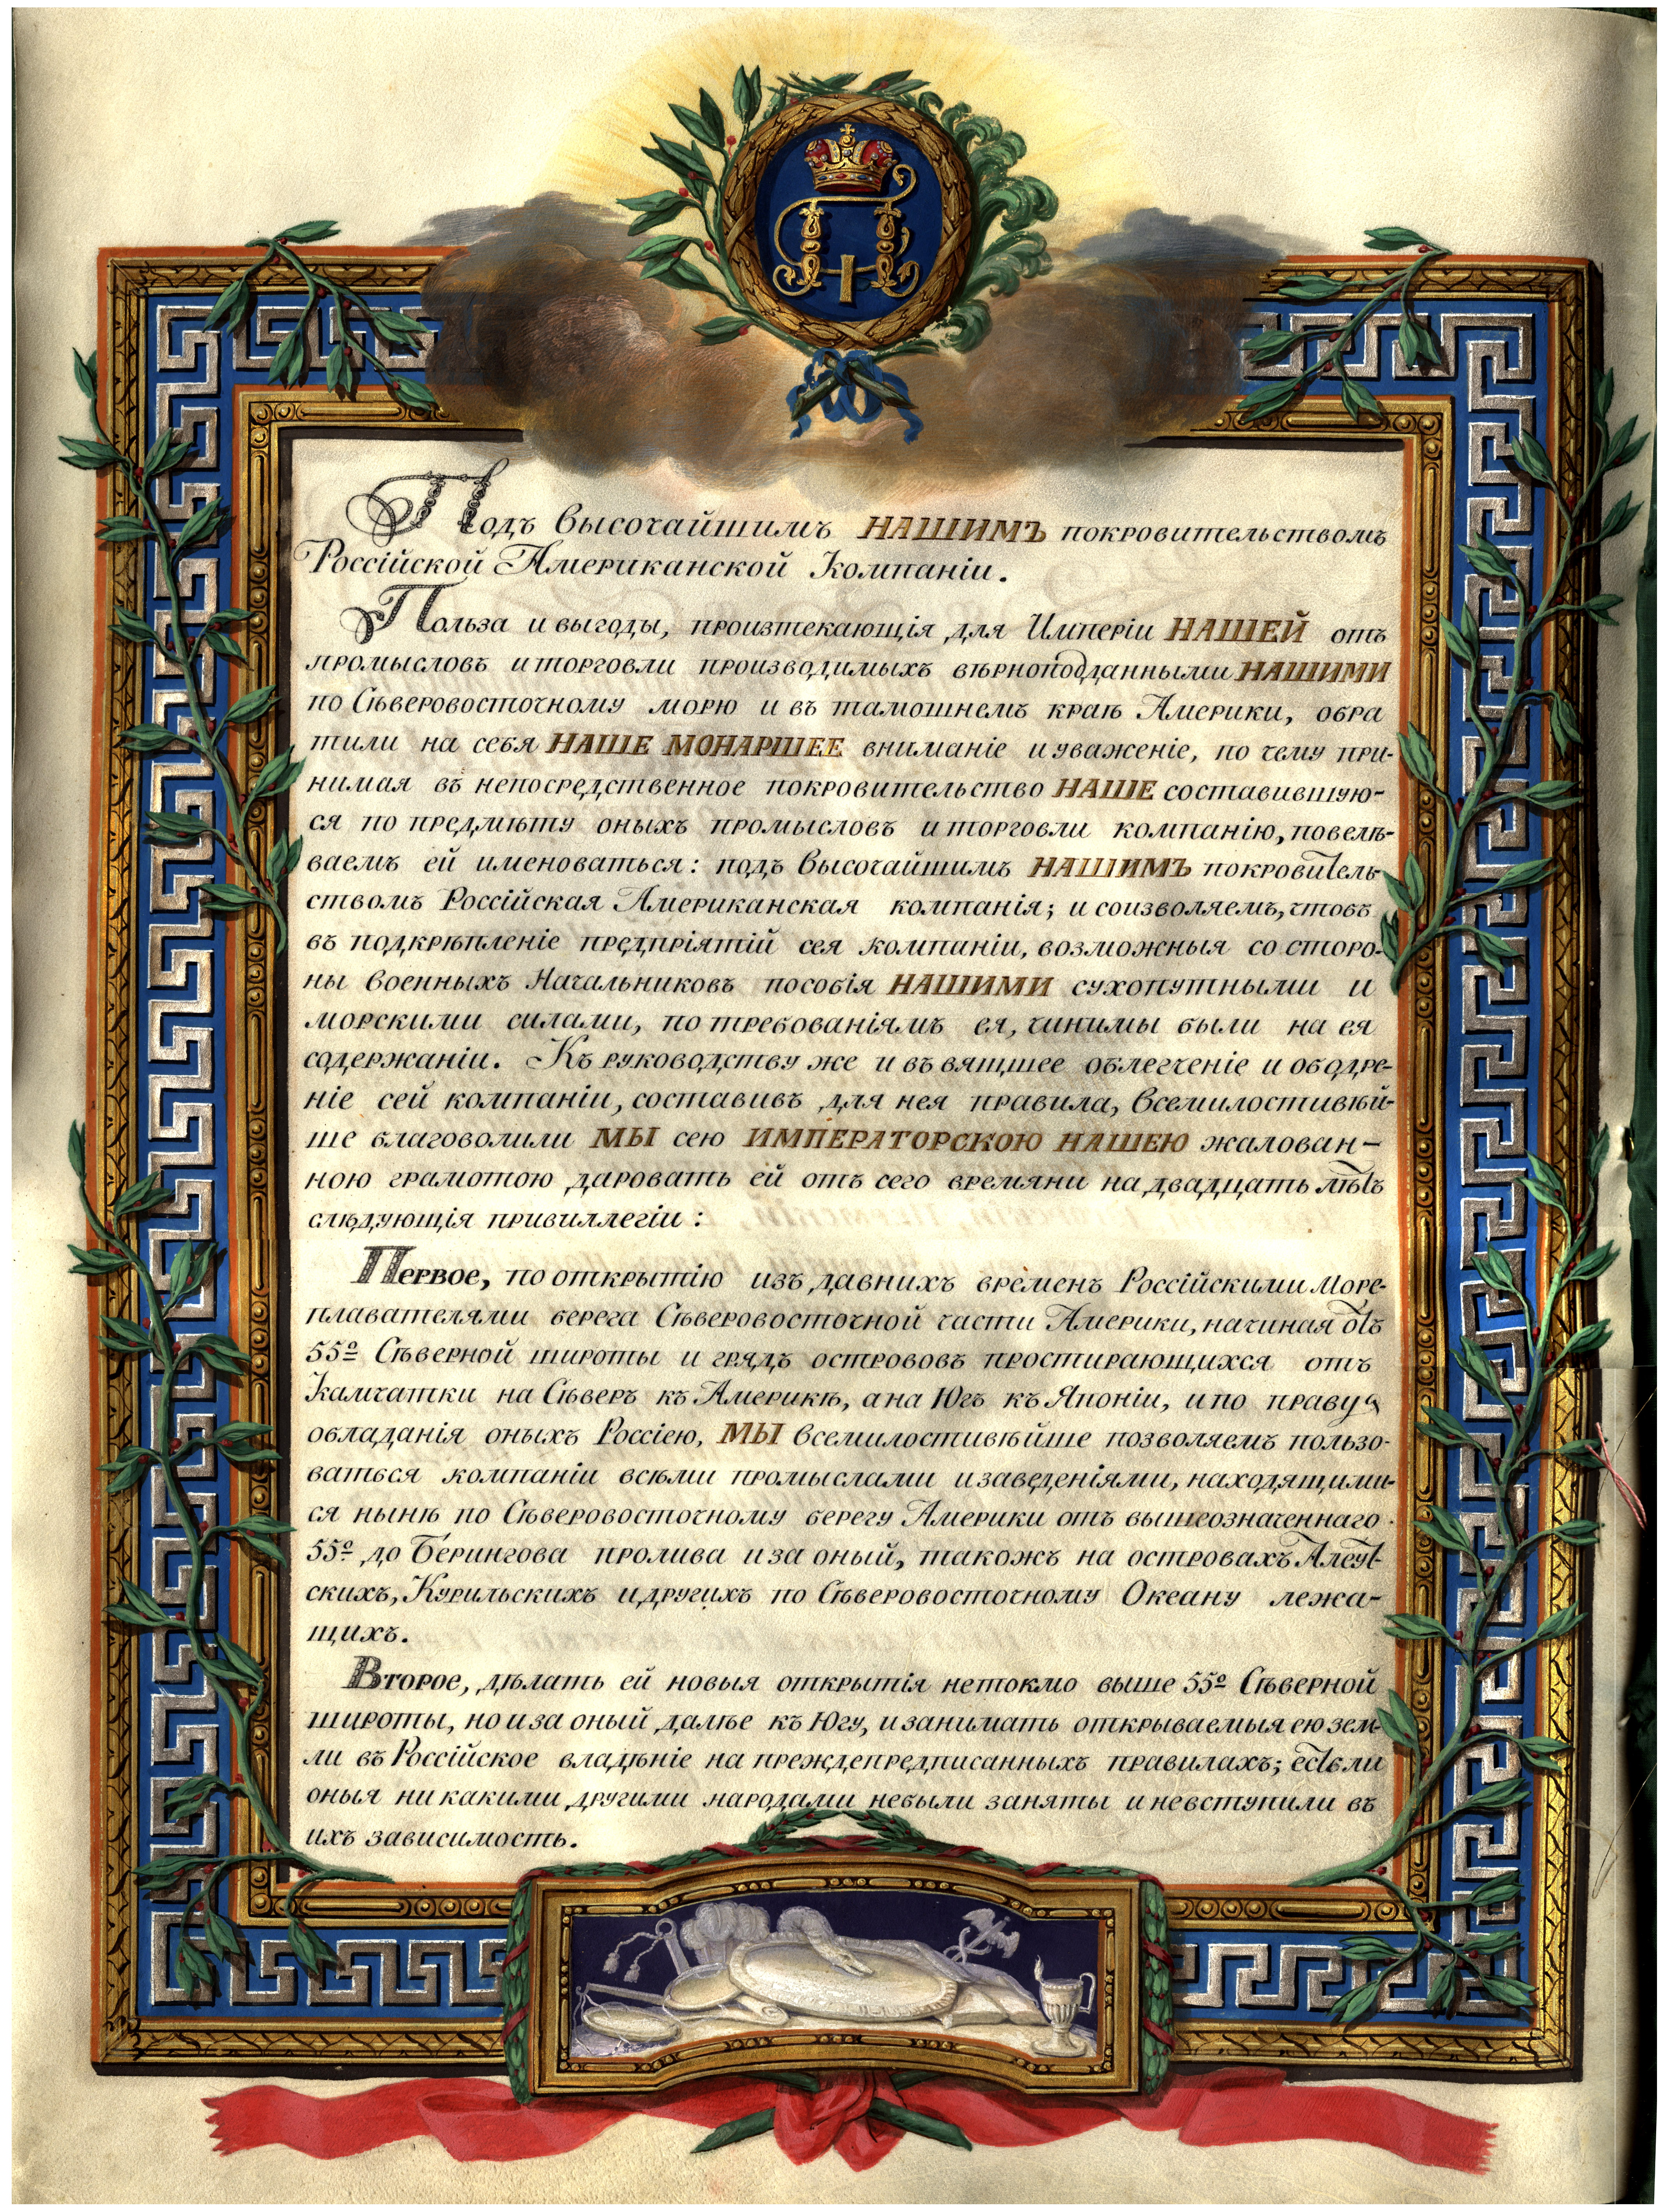 Подъ Высочайшимъ НАШИМЪ покровительствомъ
Россійской Американской Компаніи.
Польза и выгоды, произтекающія для Имперіи НАШЕЙ отъ
промысловъ и торговли производимыхъ вѣрноподданными НАШИМИ
по Сѣверовосточному морю и въ тамошнемъ краѣ Америки, обра
тили на себя НАШЕ МОНАРШЕЕ вниманіе и уваженіе, по чему при-
нимая въ непосредственное покровительство НАШЕ составившую-
ся по предмѣту оныхъ промысловъ и торговли компанію, повелѣ-
ваемъ ей именоваться: подъ Высочайшимъ НАШИМЪ покровитель-
ствомъ Россійская Американская компанія; и соизволяемъ, чтобъ
въ подкрѣпленіе предпріятій сея компаніи, возможныя со сторо-
ны военныхъ Начальниковъ пособія НАШИМИ сухопутными и
морскими силами, по требованіямъ ея, чинимы были на ея
содержаніи. Къ руководству же и въ вящшее облегченіе и ободре-
ніе сей компаніи, составивъ для нея правила, Всемилостивѣй-
ше благоволили МЫ сею ИМПЕРАТОРСКОЮ НАШЕЮ жалован-
ною грамотою даровать ей отъ сего времяни на двадцать лѣтъ
слѣдующія привиллегіи:
Первое, по открытію изъ давнихъ временъ Россійскими Море-
плавателями берега Сѣверовосточной части Америки, начиная отъ
55º Сѣверной широты и грядъ острововъ простирающихся отъ
Камчатки на Сѣверъ къ Америкѣ, а на Югъ къ Японіи, и по праву
обладанія оныхъ Россіею, МЫ Всемилостивѣйше позволяемъ пользо-
ваться компаніи всѣми промыслами и заведеніями, находящими-
ся нынѣ по Сѣверовосточному берегу Америки отъ вышеозначеннаго
55º до Берингова пролива и за оный, такожъ на островахъ Алеут-
скихъ, Курильскихъ и другихъ по Сѣверовосточному Океану лежа-
щихъ.
Второе, дѣлать ей новыя открытія нетокмо выше 55º Сѣверной
широты, но и за оный далѣе къ Югу, и занимать открываемыя ею зем-
ли въ Россійское владѣніе на преждепредписанныхъ правилахъ; естьли
оныя ни какими другими народами небыли заняты и невступили въ
ихъ зависимость.